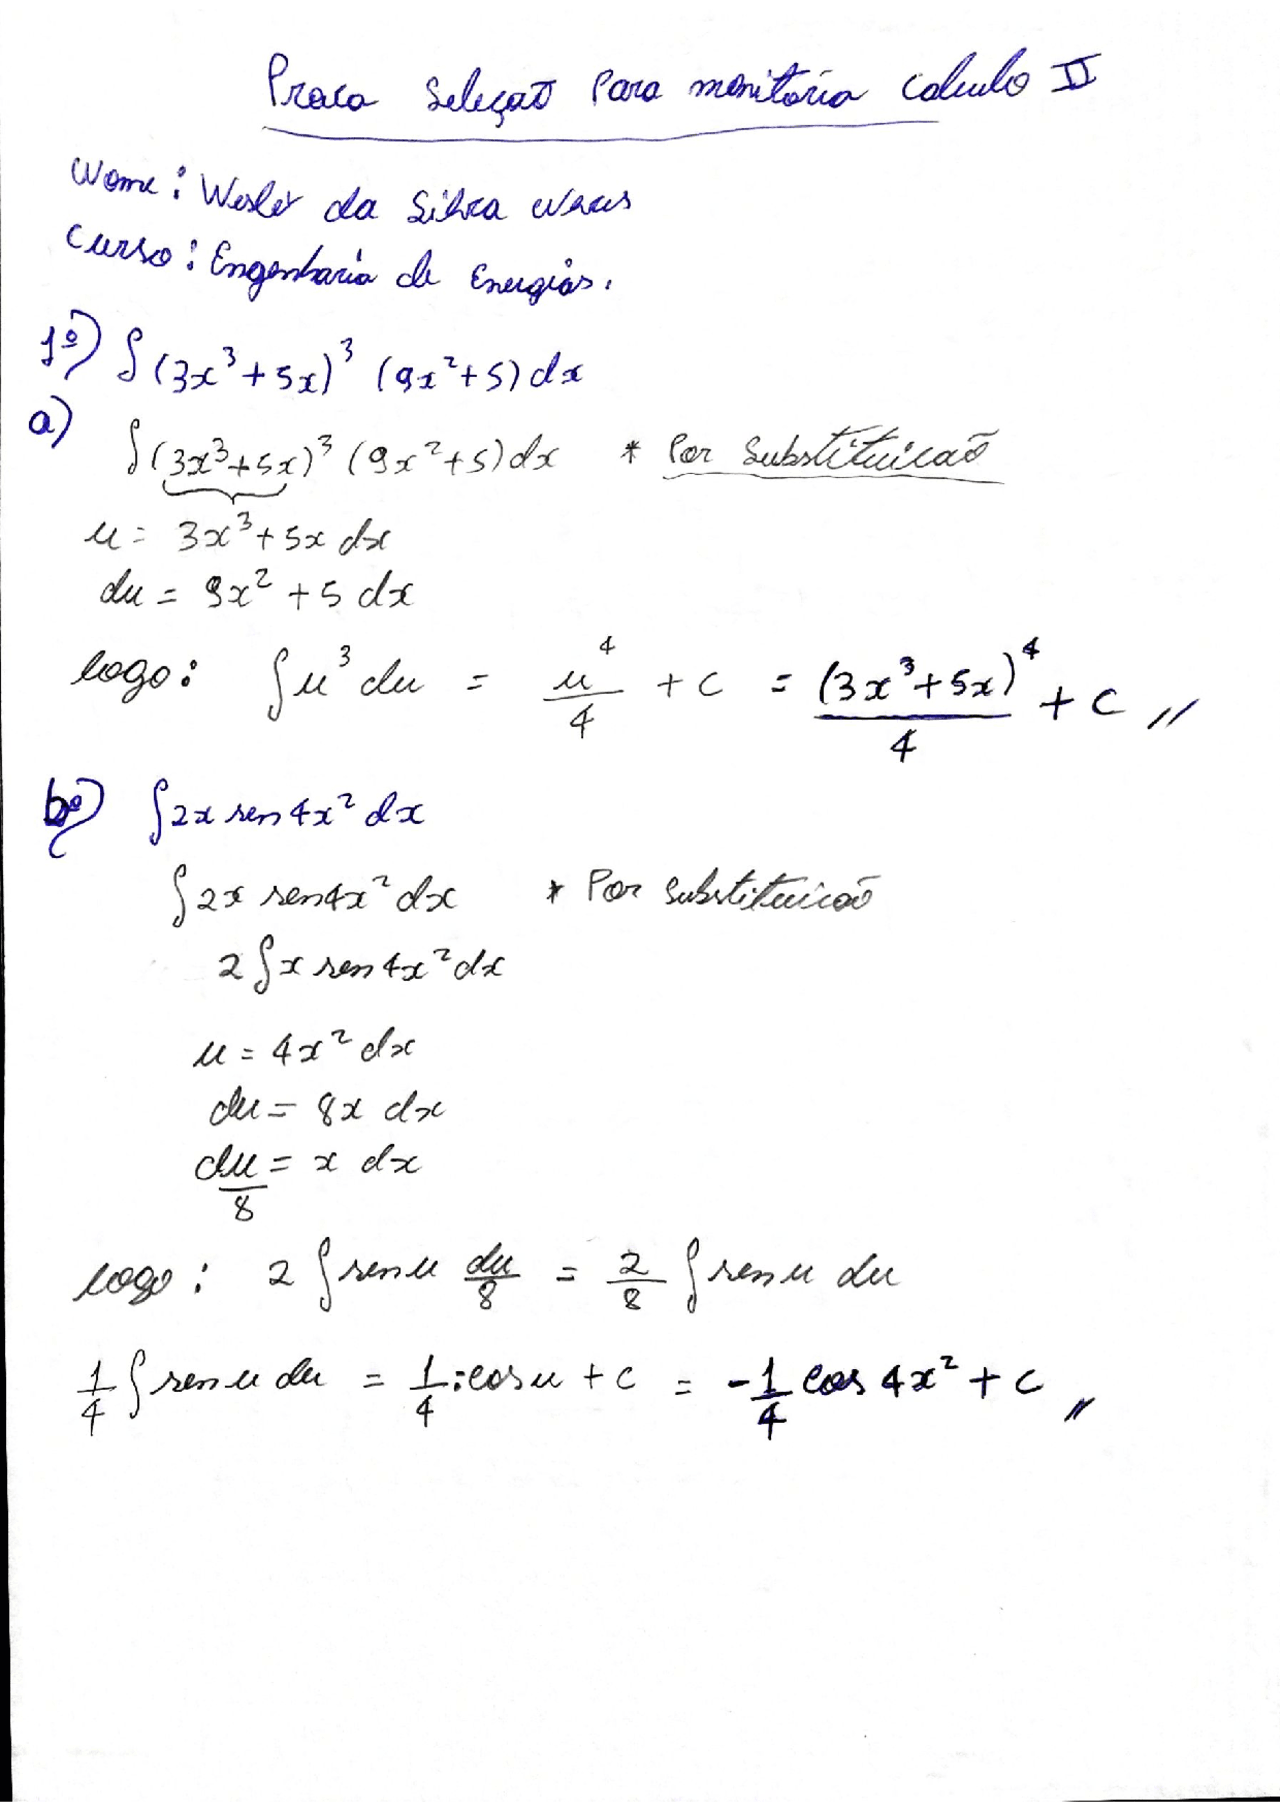 Prova Seleção Para monitoria calculo II
Nome: Wesley da Silva
Curso: Engenharia de Energias.
1º) ∫(3x³+5x)³ (9x²+5)dx
a) ∫(3x³+5x)³ (9x²+5)dx * Por Substituicão
u = 3x³+5x dx
du = 9x² + 5 dx
logo: ∫u³ du = u⁴/4 + c = (3x³+5x)⁴/4 + c //
b) ∫2x sen 4x² dx
∫2x sen4x² dx * Por substituicão
2∫x sen 4x² dx
u = 4x² dx
du = 8x dx
du/8 = x dx
logo: 2∫sen u du/8 = 2/8 ∫sen u du
1/4 ∫sen u du = 1/4 .-cos u + c = -1/4 cos 4x² + c //